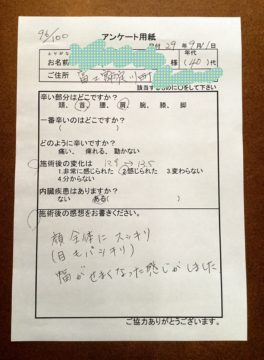 96/100
アンケート用紙
付 29年9月1日
ふりがな
年代
お名前 様 (40)代
ご住所 富士 川町
該当するものに〇をして下さい
辛い部分はどこですか?
頭、首、腰、肩、腕、膝、脚
一番辛いのはどこですか?
( )
どのように辛いですか?
痛い、痺れる、動かない
施術後の変化は
1.非常に感じられた 2.感じられた 3.変わらない
4.分からない
内臓疾患はありますか?
ない ある( )
施術後の感想をお書きください。
顔全体にスッキリ
(目もパシキリ)
幅がせまくなった感じがしました
ご協力ありがとうございます。